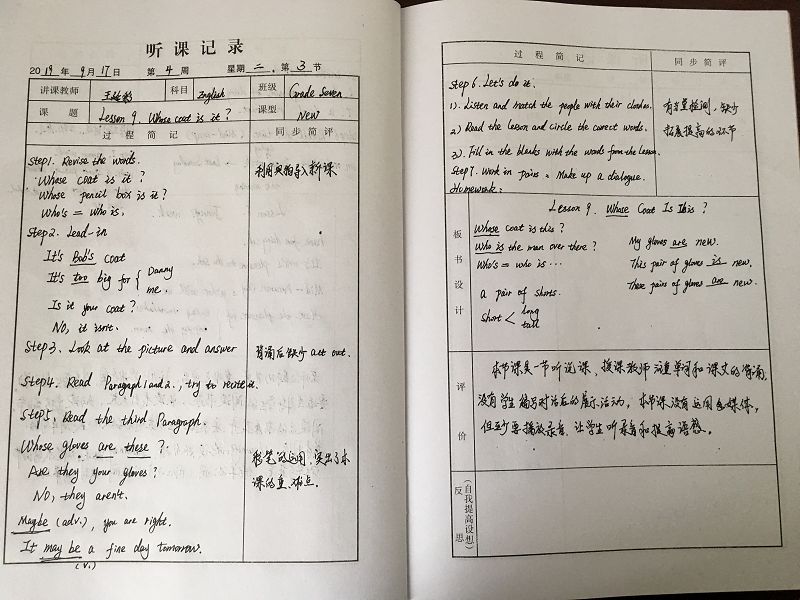 听课记录
2019年9月17日 第4周 星期二, 第3节
讲课教师 科目 English 班级 Grade Seven
课题 Lesson 9. Whose coat is it? 课型 New
过程简记 同步简评
Step1. Revise the words.
Whose coat is it?
Whose pencil box is it?
Who's = who is.
利用实物导入新课
Step2. Lead-in
It's Bob's coat
It's too big for { Danny
me.
Is it your coat?
NO, it isn't.
Step3. Look at the picture and answer
背诵后缺少act out.
Step4. Read Paragraph 1 and 2., try to recite it.
Step5. Read the third Paragraph.
Whose gloves are these?
Are they your gloves?
NO, they aren't.
彩笔的运用, 突出了本
课的重、难点.
Maybe (adv.), you are right.
It may be a fine day tomorrow.
(V.)
过程简记 同步简评
Step 6. Let's do it.
1). Listen and match the people with their clothes.
2) Read the lesson and circle the correct words.
3). Fill in the blanks with the words from the lesson.
Step7. Work in pairs = Make up a dialogue.
Homework:
有当堂检测, 缺少
拓展提高的环节
板书设计
Lesson 9. Whose Coat Is This?
Whose coat is this?
Who is the man over there?
Who's = who is ...
a pair of shorts.
short < long
tall
My gloves are new.
This pair of gloves is new.
These pairs of gloves are new.
评价
本节课是一节听说课, 授课教师注重单词和课文的背诵,
没有学生编写对话后的展示活动, 本节课没有运用多媒体,
但至少要播放录音, 让学生听录音和提高语感.
反思
(自我提高设想)